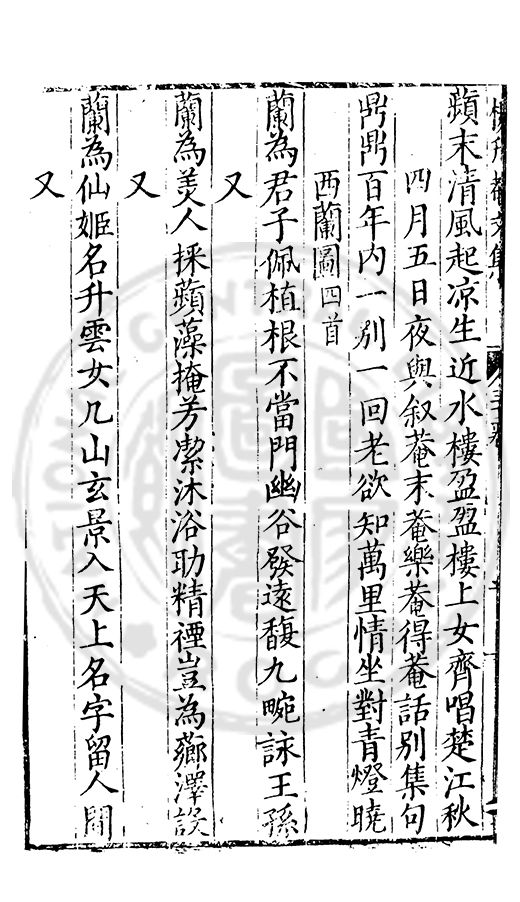 蘋末清風起凉生近水樓盈盈樓上女齊唱楚江秋
四月五日夜與叙菴末菴樂菴得菴話别集句
鼎鼎百年内一别一回老欲知萬里情坐對青燈曉
西蘭圖四首
蘭為君子佩植根不當門幽谷發遠馥九畹詠王孫
又
蘭為美人採蘋藻掩芳潔沐浴助精禋豈為薌澤設
又
蘭為仙姬名升雲女几山玄景入天上名字留人間
又